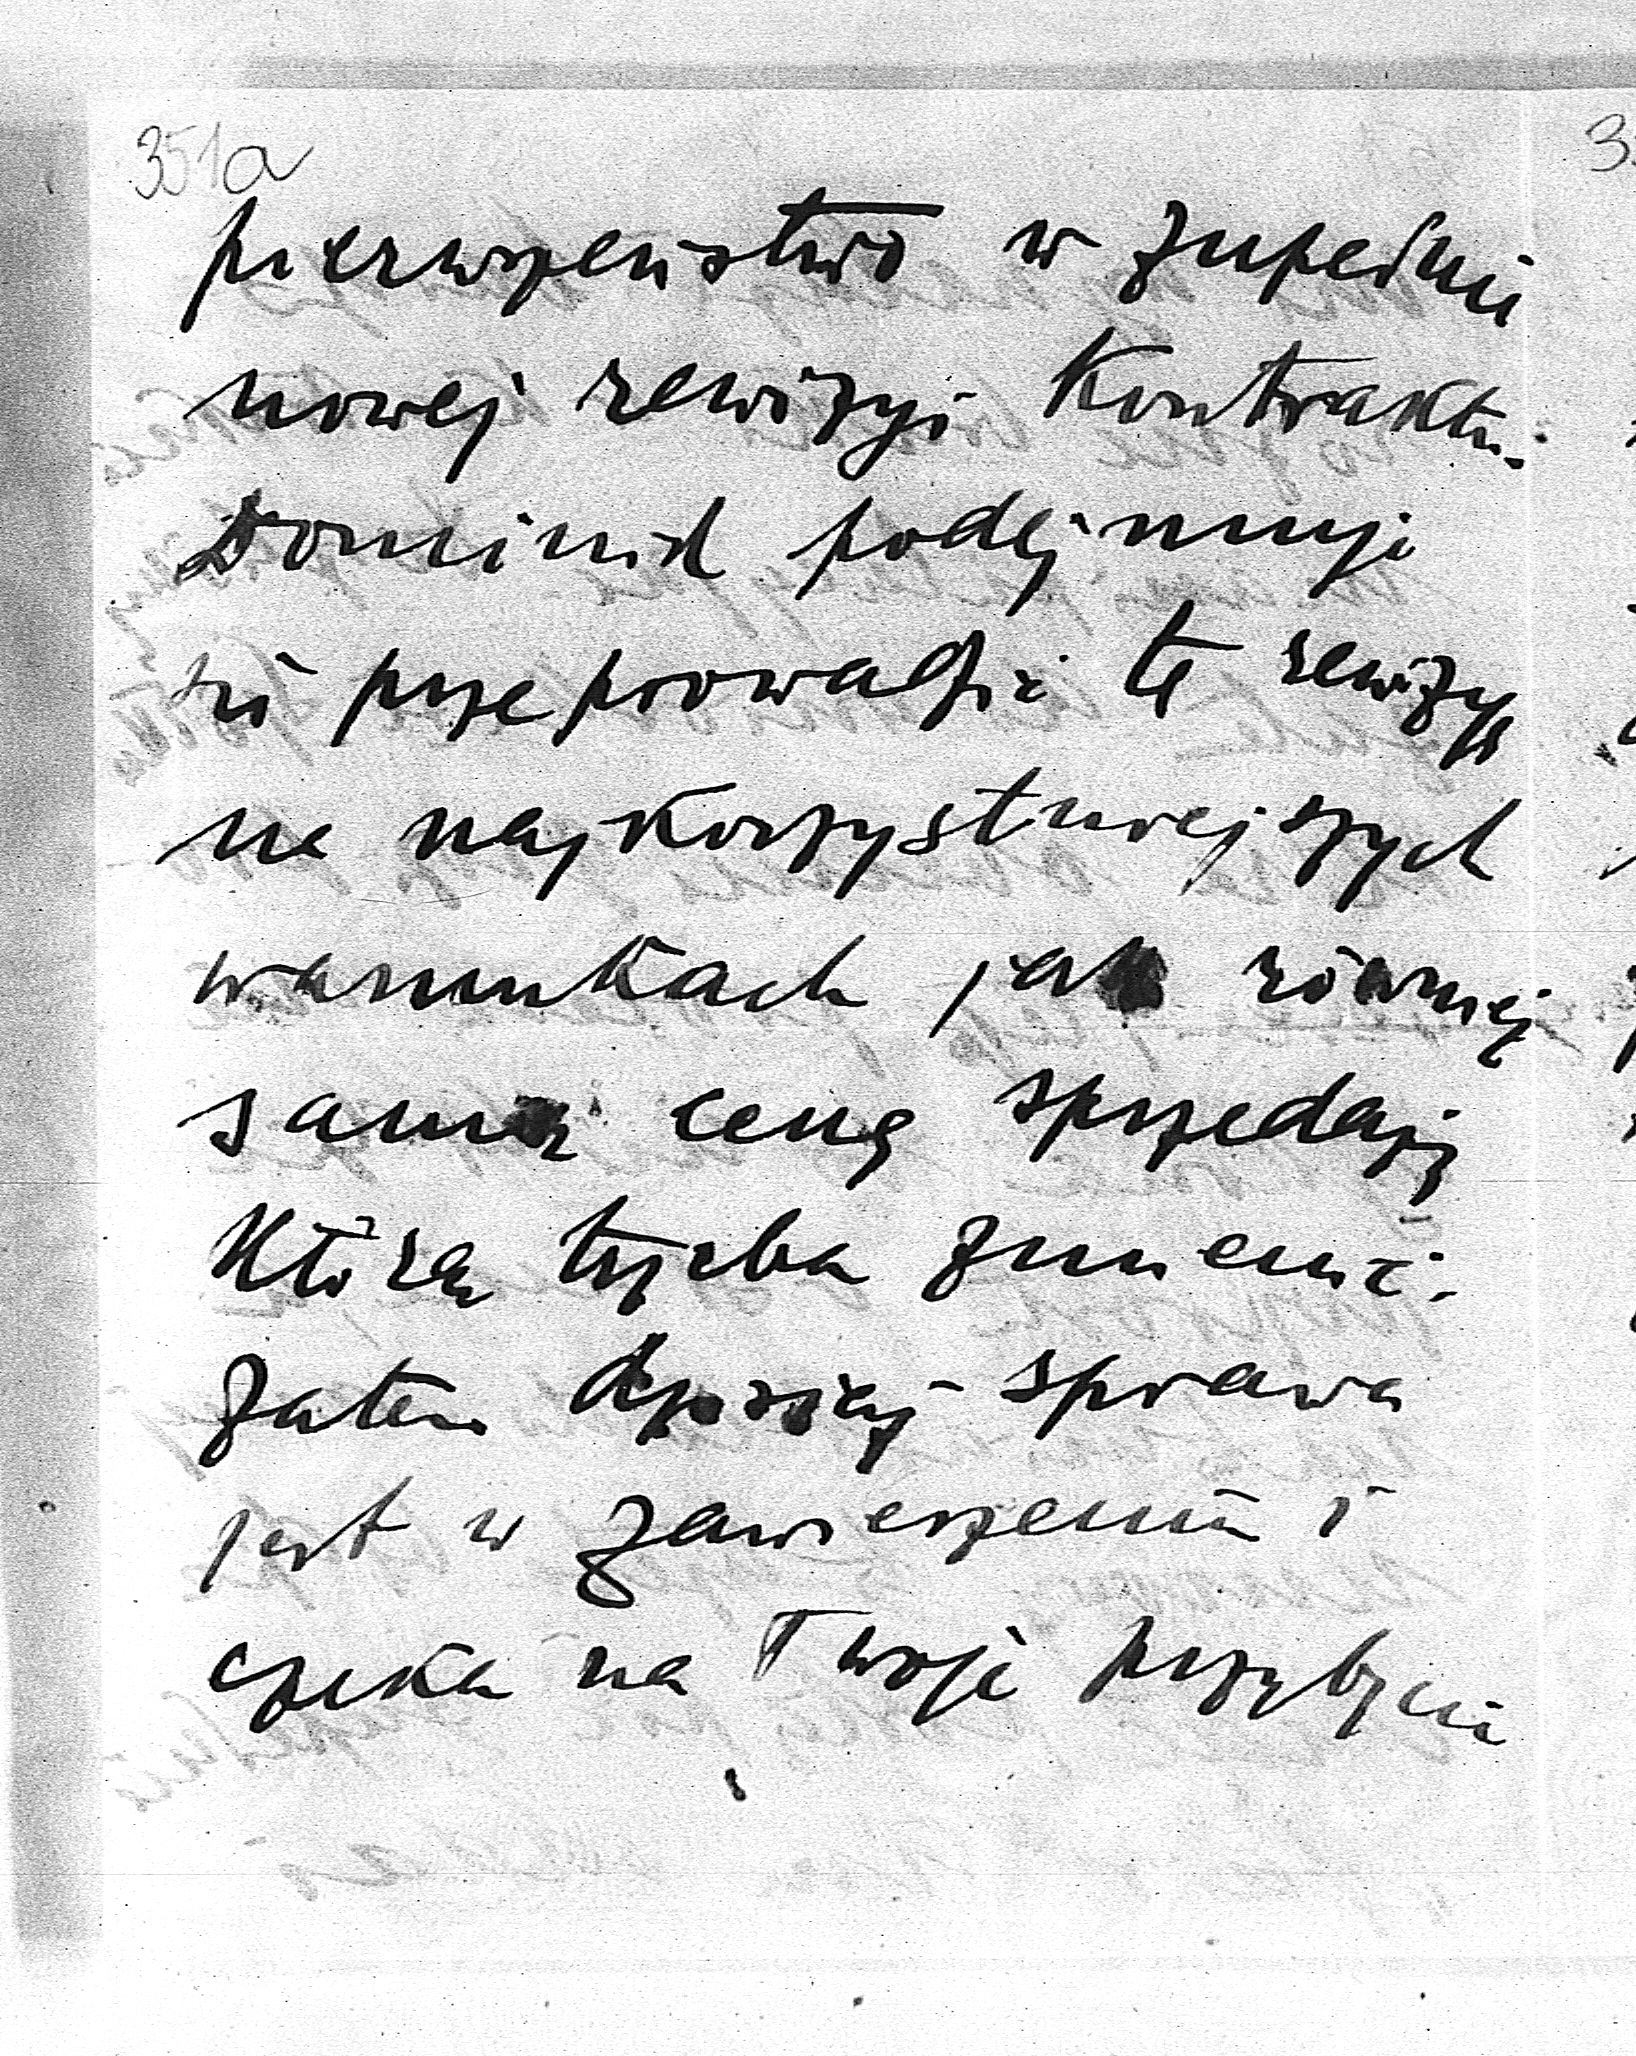 351a
pierwszeństwo w zupełnie
nowej rewizyi Kontraktu.
Dominik podejmuje
się przeprowadzić tę rewizyę
na najkorzystniejszych
warunkach jak również
samą cenę sprzedaży
którą trzeba zmienić.
Zatem dzisiaj sprawa
jest w zawieszeniu i
czeka na Twoje przybycie